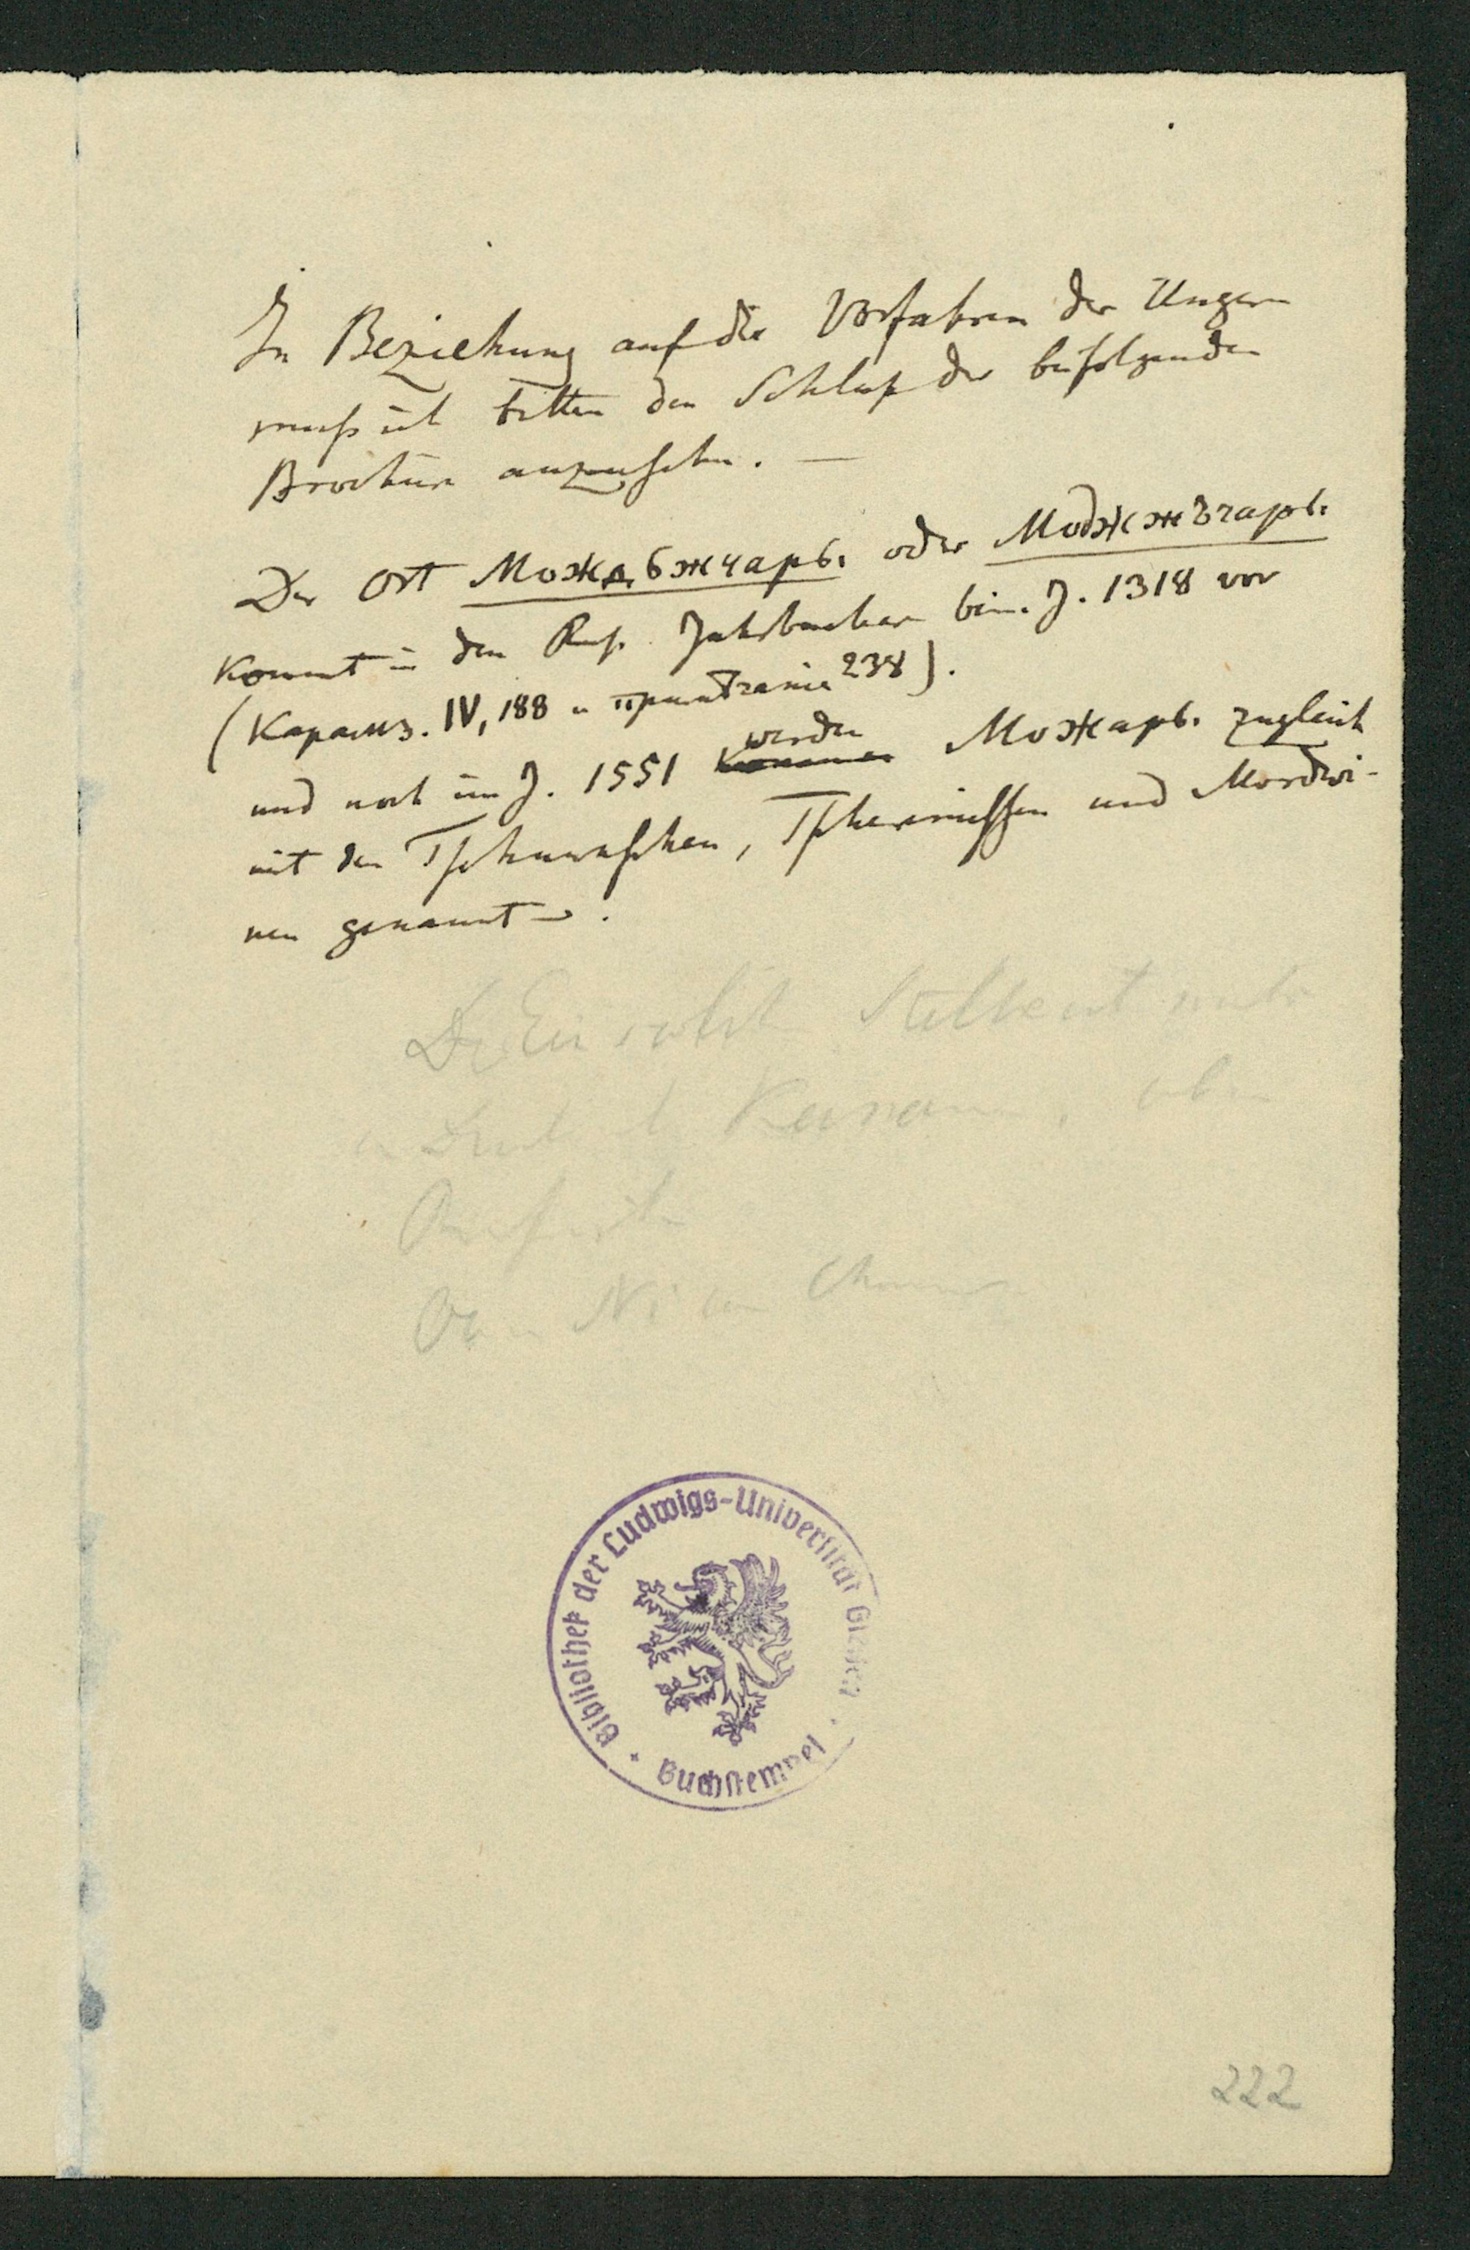 In Beziehung auf die Vorfahren der Ungern
muß ich bitten den Schluß der beifolgenden
Brochüre anzusehen. —
Der Ort Мождьжчарь. oder Моджжъчарь.
kommt in den Ruß. Jahrbüchern beim. J. 1318 vor
(Карамз. IV, 188 и примѣчание 238).
und noch im J. 1551 werden Можаръ. zugleich
mit den Tschuwaschen, Tscheremissen und Mordwi-
nen genannt.
Bibliothek der Ludwigs-Universität Giessen
Buchstempel
222